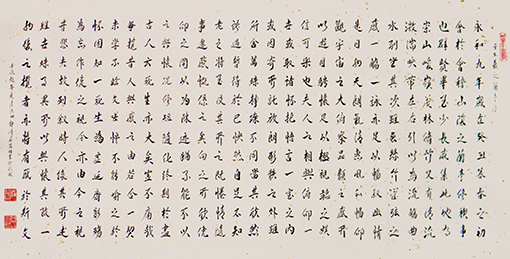 永和九年歲在癸丑暮春之初
會於會稽山陰之蘭亭修禊事
也群賢畢至少長咸集此地有
崇山峻嶺茂林修竹又有清流
激湍映帶左右引以為流觴曲
水列坐其次雖無絲竹管弦之
盛一觴一詠亦足以暢敘幽情
是日也天朗氣清惠風和暢仰
觀宇宙之大俯察品類之盛所
以遊目騁懷足以極視聽之娛
信可樂也夫人之相與俯仰一
世或取諸懷抱悟言一室之內
或因寄所託放浪形骸之外雖
趣舍萬殊靜躁不同當其欣於
所遇暫得於己快然自足不知
老之將至及其所之既倦情隨
事遷感慨係之矣向之所欣俛
仰之間以為陳迹猶不能不以
之興懷況修短隨化終期於盡
古人云死生亦大矣豈不痛哉
每覽昔人興感之由若合一契
未嘗不臨文嗟悼不能喻之於
懷固知一死生為虛誕齊彭殤
為妄作後之視今亦由今之視
昔悲夫故列敘時人錄其所述
雖世殊事異所以興懷其致一
也後之攬者亦將有感於斯文